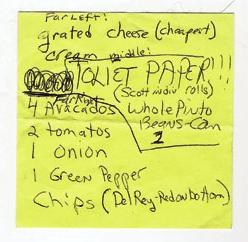 Far Left:
grated cheese (cheapest)
cream middle:
TOILET PAPER!!!
(Scott indiv rolls)
Far Right
4 Avacados Whole Pinto
2 tomatos Beans-Can
1
1 Onion
1 Green Pepper
Chips (Del Rey-Red on bottom)